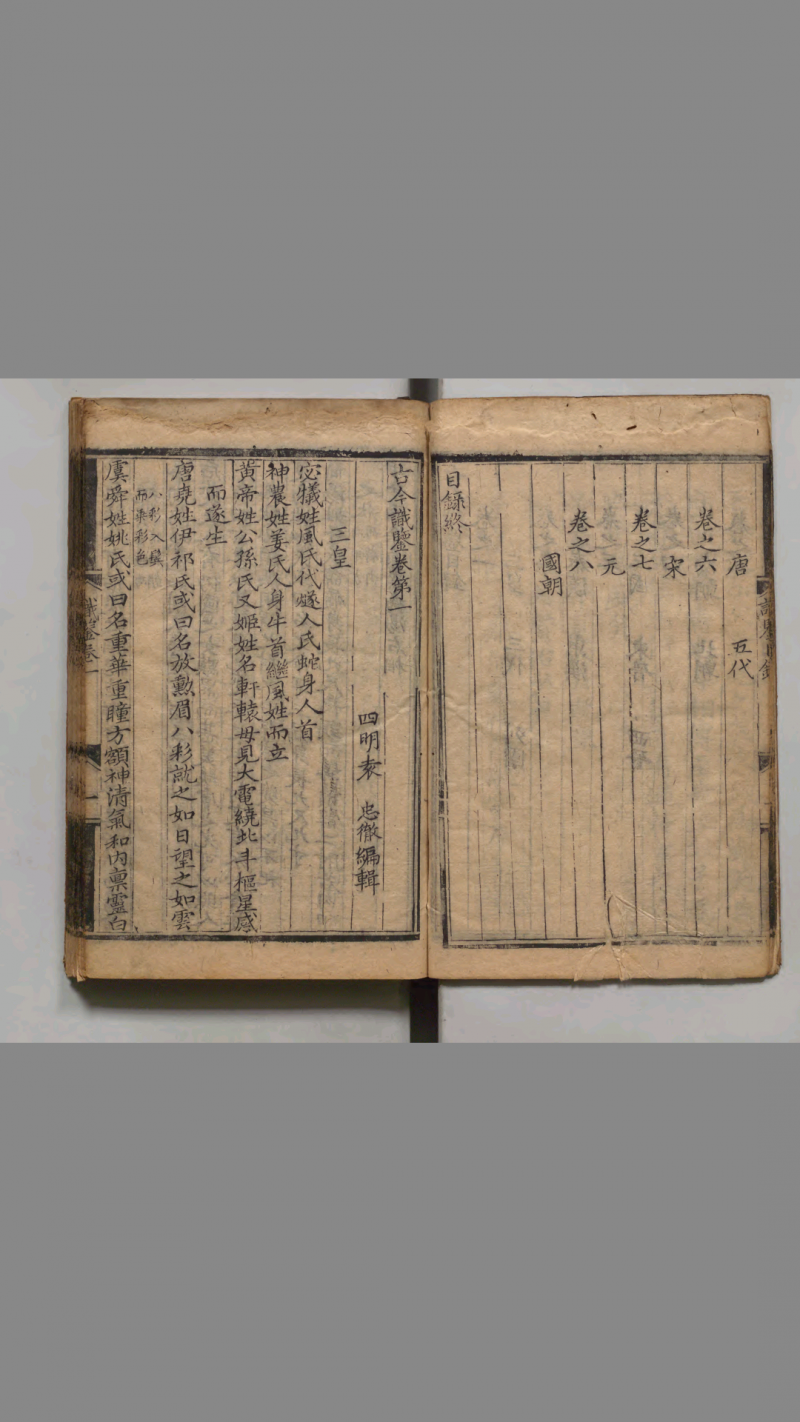 唐　五代
卷之六
宋
卷之七
元
卷之八
國朝
目錄終
古今識鑒卷第一
四明袁　忠徹編輯
三皇
宓犧姓風氏代燧人氏蛇身人首
神農姓姜氏人身牛首繼風姓而立
黃帝姓公孫氏又姬姓名軒轅母見大電繞北斗樞星感
而遂生
唐堯姓伊祁氏或曰名放勳眉八彩就之如日望之如雲
八彩
而染彩色
虞舜姓姚氏或曰名重華重瞳方額神清氣和內稟靈白
識鑒卷一